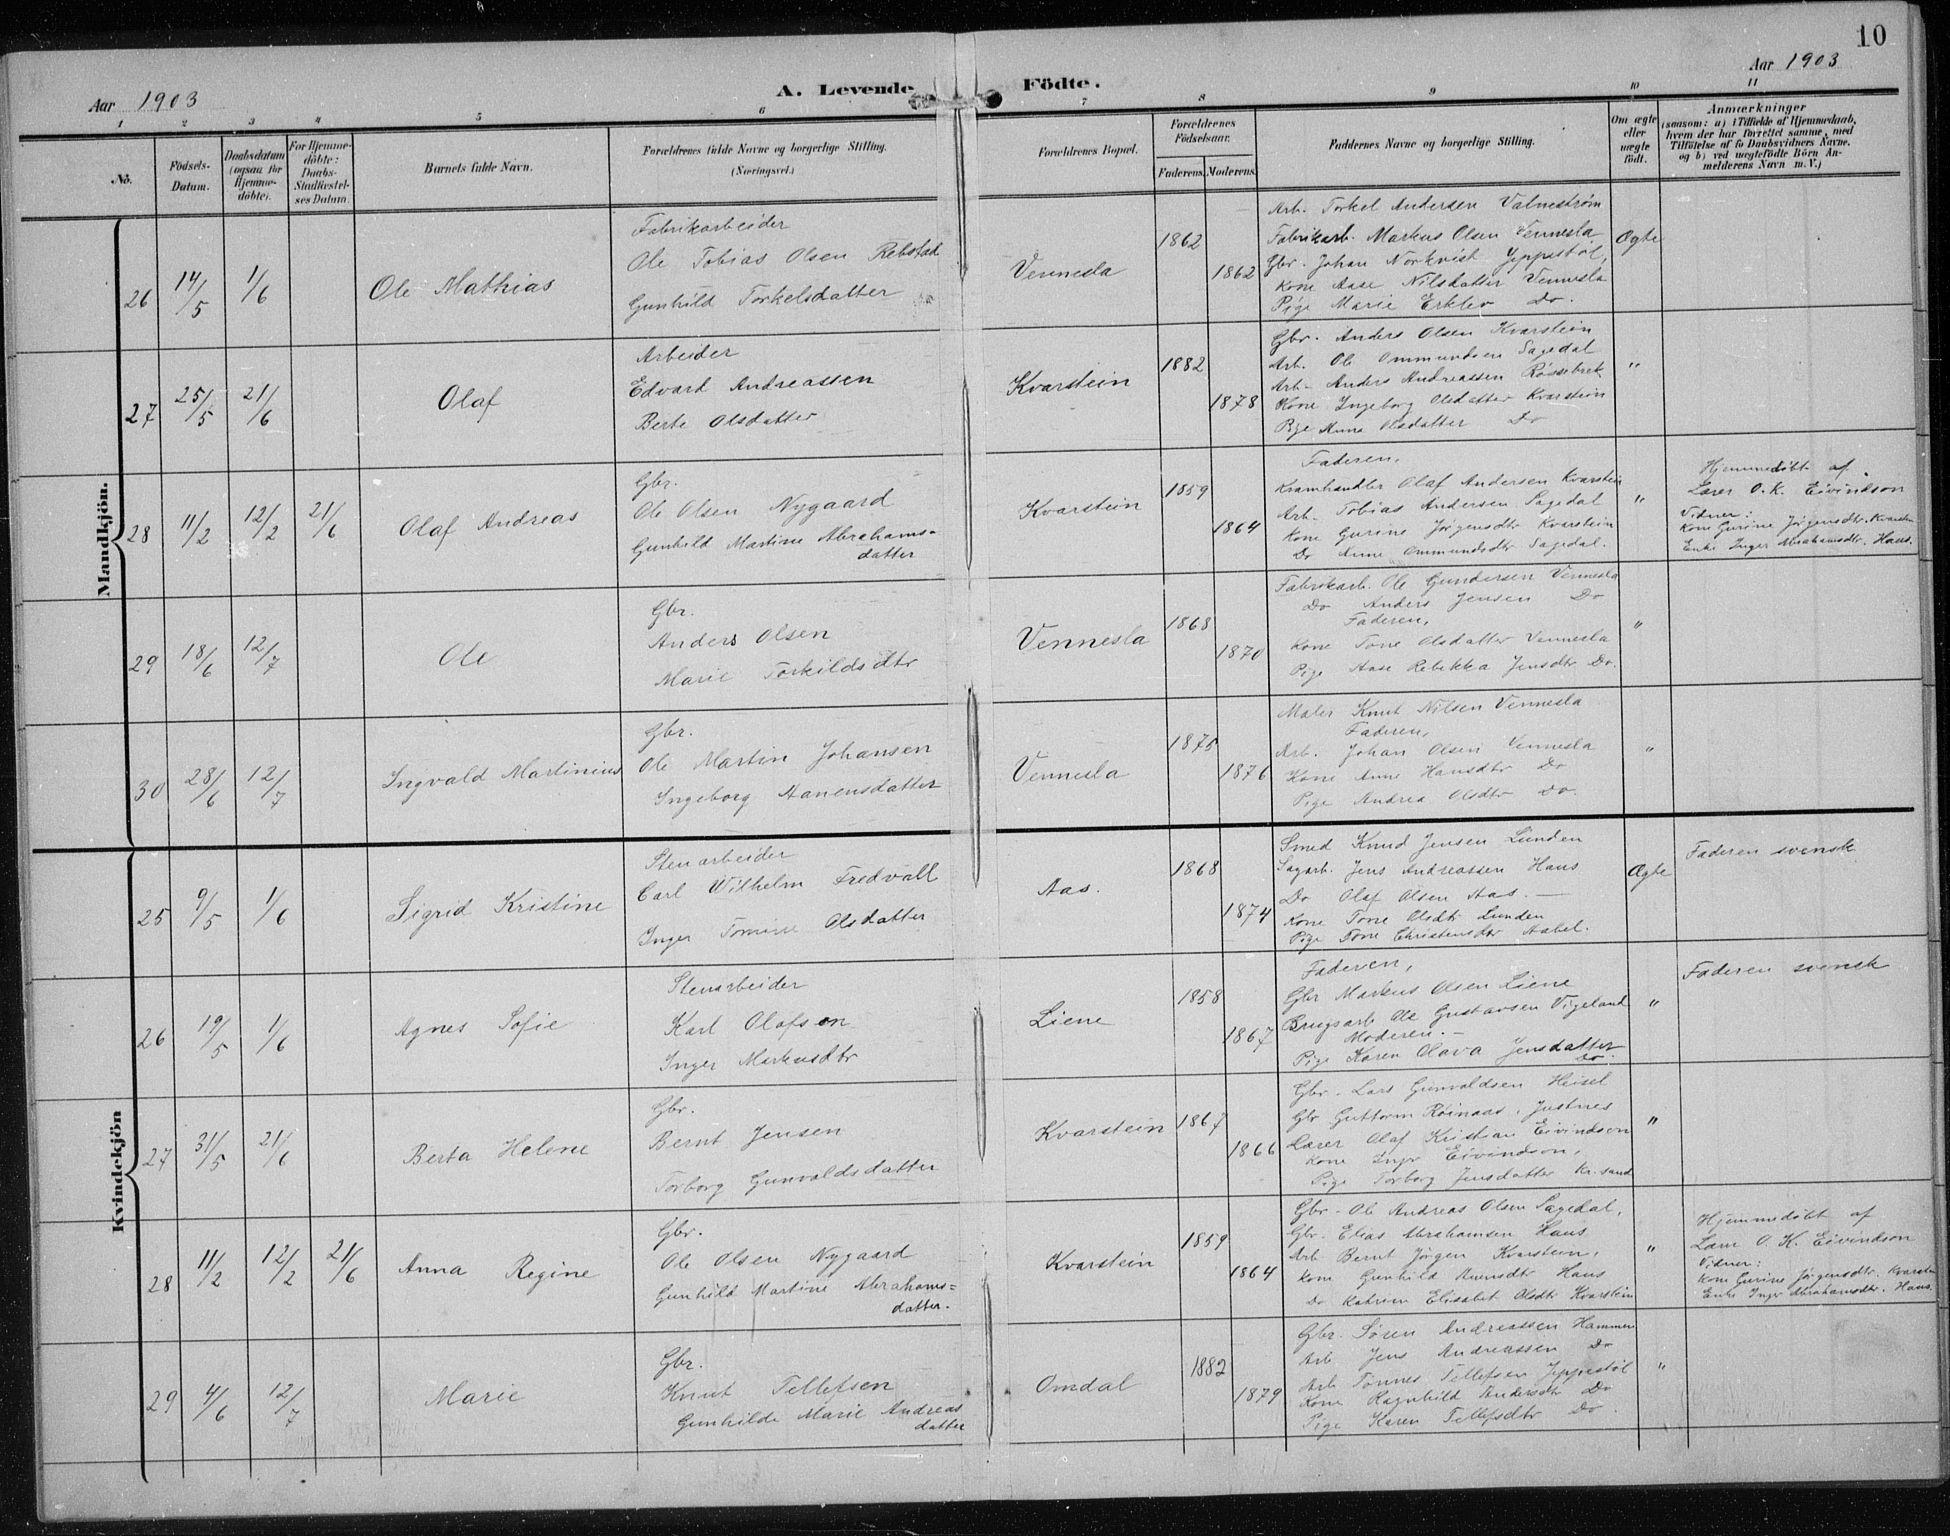 10
Aar 1903
A. Levende Födte.
Aar 1903
1 2 3 4 5 6 7 8 9 10 11
No.
Födsels-Datum.
Daabsdatum (ogsaa for Hjemmedöbte).
For Hjemmedöbte: Daabs-Stadfæstelses Datum.
Barnets fulde Navn.
Forældrenes fulde Navne og borgerlige Stilling.
(Næringsvei.)
Forældrenes Bopæl.
Forældrenes Födselsaar.
Faderens. Moderens.
Faddernes Navne og borgerlige Stilling.
Om ægte eller uægte födt.
Anmærkninger
(saasom: a) i Tilfælde af Hjemmedaab, hvem der har forrettet samme, med Tilföielse af to Daabsvidners Navne. og b) ved uægtefödte Börn Anmelderens Navn m. V.)
Mandkjön.
26 14/5 1/6 Ole Mathias
Fabrikarbeider
Ole Tobias Olsen Rebstad
Gunhild Torkelsdatter
Vennesla 1862 1862
Arb. Torkel Andersen Valnestrøm
Fabrikarb. Markus Olsen Vennesla
Gbr. Johan Norkvist Jeppestøl,
Kone Aase Nilsdatter Vennesla
Pige Marie Erklev Do.
Ægte
27 25/5 21/6 Olaf
Arbeider
Edvard Andreassen
Berte Olsdatter
Kvarstein 1882 1878
Gbr. Anders Olsen Kvarstein
Arb. Ole Ommundsen Sagedal
Arb. Anders Andreassen Røssebrek
Kone Ingeborg Olsdatter Kvarstein
Pige Anna Olsdatter Do
"
28 11/2 12/2 21/6 Olaf Andreas
Gbr.
Ole Olsen Nygaard
Gunhild Martine Abrahams=
datter
Kvarstein 1859 1864
Faderen,
Kramhandler Olaf Andersen Kvarstein
Arb. Tobias Andersen Sagedal
Kone Gurine Jørgensdtr Kvarstein
Do Anne Ommundsdtr Sagedal.
"
Hjemmedöbt af
Lærer O. K. Eivindson
Vidner:
Kone Gurine Jørgensdtr. Kvarstein
Enke Inger Abrahamsdtr. Haus.
29 18/6 12/7 Ole
Gbr.
Anders Olsen
Marie Torkildsdtr
Vennesla 1868 1870
Fabrikarb. Ole Gundersen Vennesla
Do Anders Jensen Do
Faderen,
Kone Tone Olsdatter Vennesla
Pige Aase Rebekka Jensdtr Do.
"
30 28/6 12/7 Ingvald Martinius
Gbr.
Ole Martin Johansen
Ingeborg Aanensdatter
Vennesla 1875 1876
Maler Knut Nilsen Vennesla
Faderen,
Arb. Johan Olsen Vennesla
Kone Anne Hansdtr Do
Pige Andrea Olsdtr Do.
"
Kvindekjön
25 9/5 1/6 Sigrid Kristine
Stenarbeider
Carl Wilhelm Fredvall
Inger Tomine Olsdatter
Aas. 1868 1874
Smed Knud Jensen Lunden
Sagarb. Jens Andreassen Haus
Do Olaf Olsen Aas. —
Kone Tone Olsdtr Lunden
Pige Tone Christensdtr Aabel.
Ægte
Faderen svensk
26 19/5 1/6 Agnes Sofie
Stenarbeider
Karl Olofson
Inger Markusdtr
Liene 1858 1867
Faderen,
Gbr Markus Olsen Liene
Brugsarb Ole Gustavsen Vigeland
Moderen. —
Pige Karen Olava Jensdatter
Do.
"
Faderen svensk
27 31/5 21/6 Berta Helene
Gbr.
Bernt Jensen
Torborg Gunvaldsdatter
Kvarstein 1867 1866
Gbr. Lars Gunvaldsen Heisel
Gbr Guttorm Røinaas, Justnes
Lærer Olaf Kristian Eivindson
Kone Inger Eivindson,
Pige Torborg Jensdatter Kr.sand
"
28 11/2 12/2 21/6 Anna Regine
Gbr.
Ole Olsen Nygaard
Gunhild Martine Abrahams=
datter.
Kvarstein 1859 1864
Gbr. Ole Andreas Olsen Sagedal,
Gbr. Elias Abrahamsen Haus
Arb Bernt Jørgen Kvarstein,
Kone Gunhild Haus
Do Katrine Elisabet Olsdtr Kvarstein
"
Hjemmedöbt af
Lærer O. K. Eivindson
Vidner:
Kone Gurine Jørgensdtr. Kvarstein
Enke Inger Abrahamsdtr. Haus.
29 4/6 12/7 Marie
Gbr.
Knut Tellefsen
Gunhilde Marie Andreas
datter
Omdal 1882 1879
Gbr. Søren Andreassen Hammen
Arb Jens Andreassen Do
Arb Tønnes Tellefsen Jeppestøl
Kone Ragnhild Andersdtr Do
Pige Karen Tellefsdtr Do
"